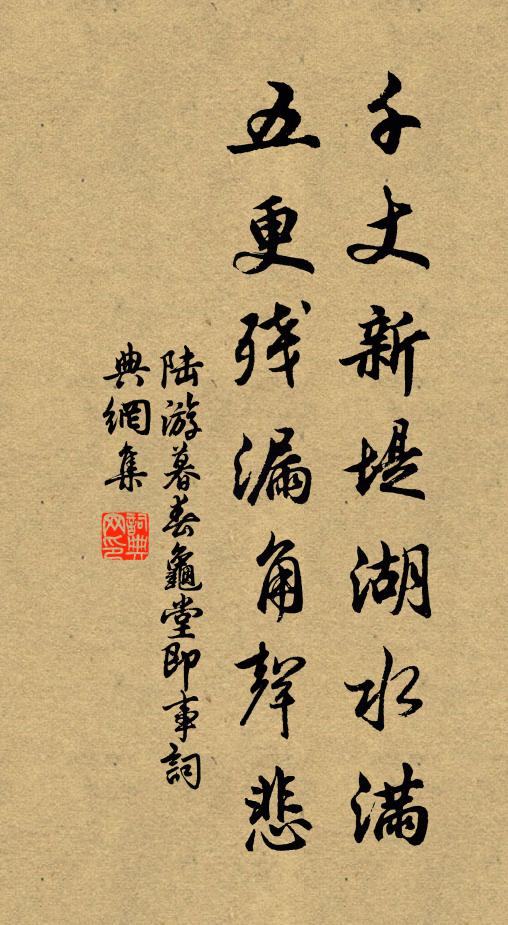 千丈新堤湖水满
五更残漏角聲悲
陆游暮春龜堂即事詞
典網集
詞典网印